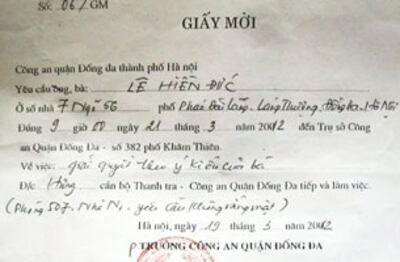 Số: 06/GM
GIẤY MỜI
Công an quận Đống đa thành phố Hà nội
Yêu cầu ông, bà: LÊ HIỀN ĐỨC
Ở số nhà 7 Ngõ 56 phố Pháo Đài Láng, Láng Thượng, Đống Đa, Hà Nội
Đúng 9 giờ 00 ngày 21 tháng 3 năm 2002 đến Trụ sở Công
an Quận Đống Đa - số 382 phố Khâm Thiên.
Về việc: giải quyết theo ý kiến của bà
Đ/c Hùng cán bộ Thanh tra - Công an Quận Đống Đa tiếp và làm việc.
(Phòng 507. yêu cầu không vắng mặt)
Hà nội, ngày 19 tháng 3 năm 2002
P TRƯỞNG CÔNG AN QUẬN ĐỐNG ĐA